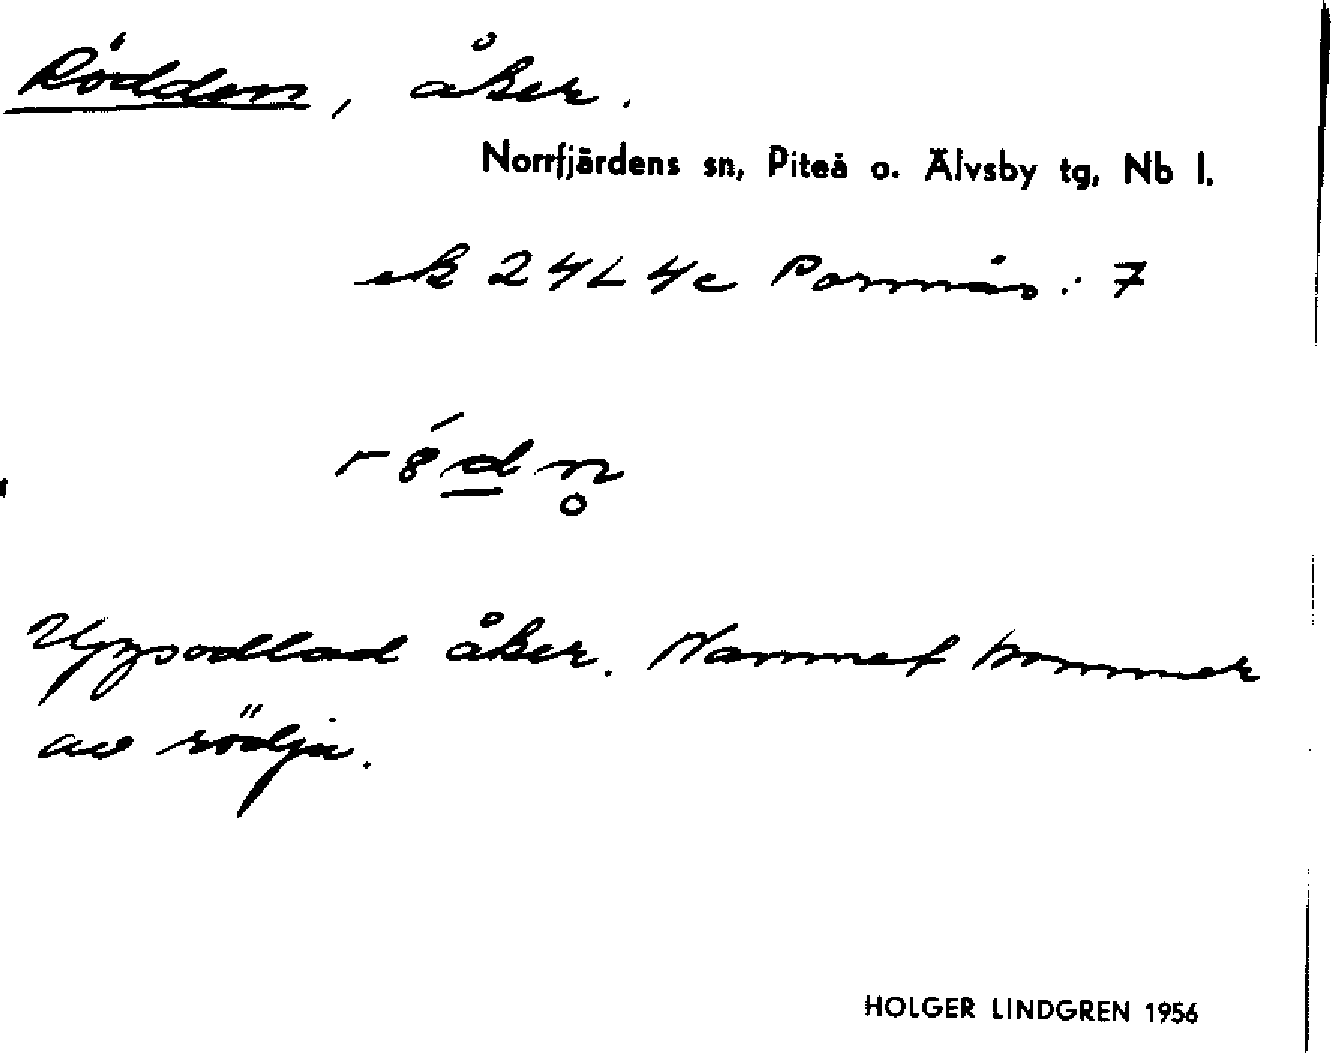 Rödden, åker.
Norrfjärdens sn, Piteå o. Älvsby tg, Nb l.
ek 24L4c Porsnäs: 7
Uppodlad åker. Namnet kommer
av rödja.
HOLGER LINDGREN 1956